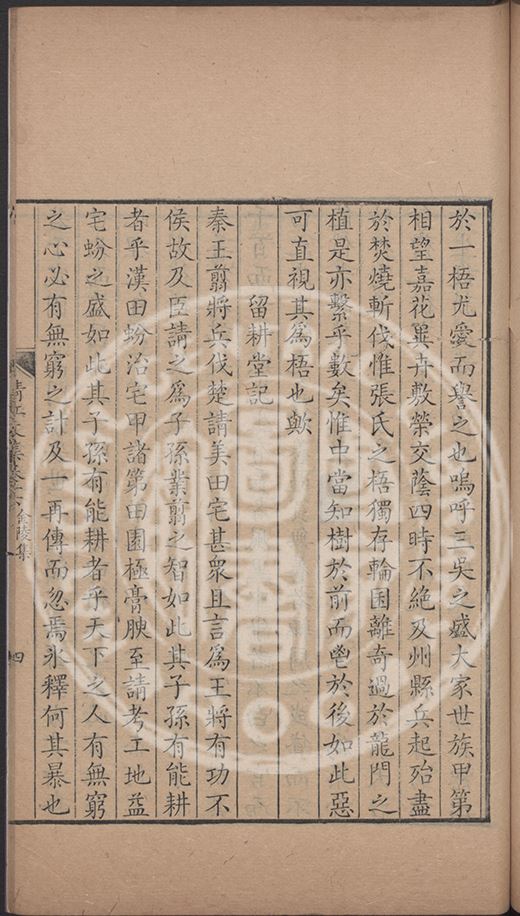 於一梧尤愛而譽之也嗚呼三吳之盛大家世族甲第
相望嘉花異卉敷榮交蔭四時不絕及州縣兵起殆盡
於焚燒斬伐惟張氏之梧獨存輪囷離奇過於龍門之
植是亦繫乎數矣惟中當知樹於前而鬯於後如此惡
可直視其爲梧也歟
留耕堂記
秦王翦將兵伐楚請美田宅甚衆且言爲王將有功不
侯故及臣請之爲子孫業翦之智如此其子孫有能耕
者乎漢田蚡治宅甲諸第田園極膏腴至請考工地益
宅蚡之盛如此其子孫有能耕者乎天下之人有無窮
之心必有無窮之計及世再傳而忽焉氷釋何其暴也
清江文集卷六 金陵集
四